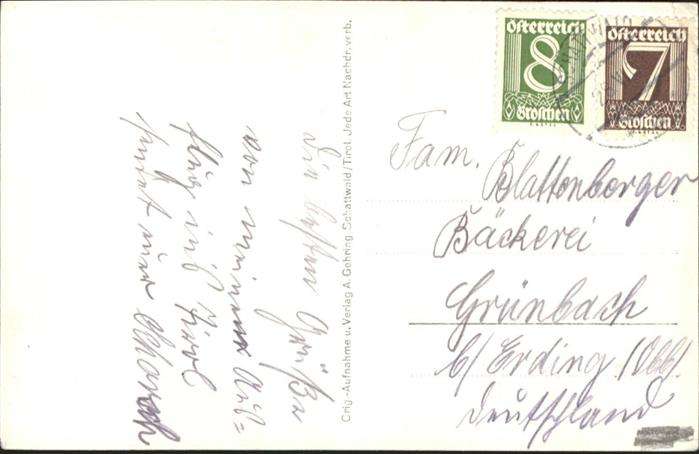 Die besten Grüße
von meinem Aus=
flug ins Tirol
sendet eur
Orig.-Aufnahme u. Verlag A. Gehring Schattwald/Tirol. Jede Art Nachdr. verb.
Österreich
8
Groschen
Österreich
7
Groschen
Fam. Blattenberger
Bäckerei
Grünbach
b/ Erding (Obb)
Deutschland